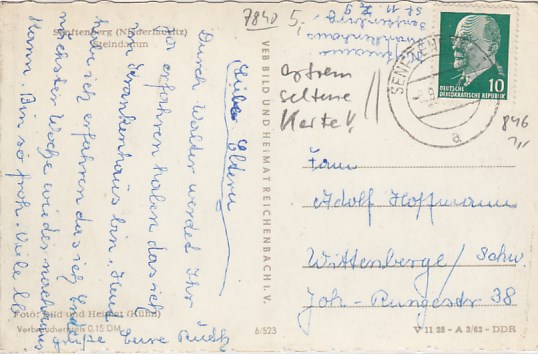 Senftenberg (Niederlausitz)
Steindamm
7840 5,-
Liebe Eltern
Durch Walter werdet Ihr
ja erfahren haben das ich
im Krankenhaus bin. Heut
habe ich erfahren das ich Ende
nächster Woche wieder nach Haus
kann. Bin so froh. Viele
Eure
Foto: Bild und Heimat (Kühn)
Verbraucherpreis 0,15 DM
6/523
VEB BILD UND HEIMAT REICHENBACH I. V.
Krankenhaus
Senftenberg
St. 11 Z. 9
extrem
seltene
Karte!!
SENFTENBERG
a
DEUTSCHE
DEMOKRATISCHE REPUBLIK
10
846
Adolf Hoffmann
Wittenberge / Schw.
Joh-Rungestr 38
V 11 28 - A 2/62 - DDR